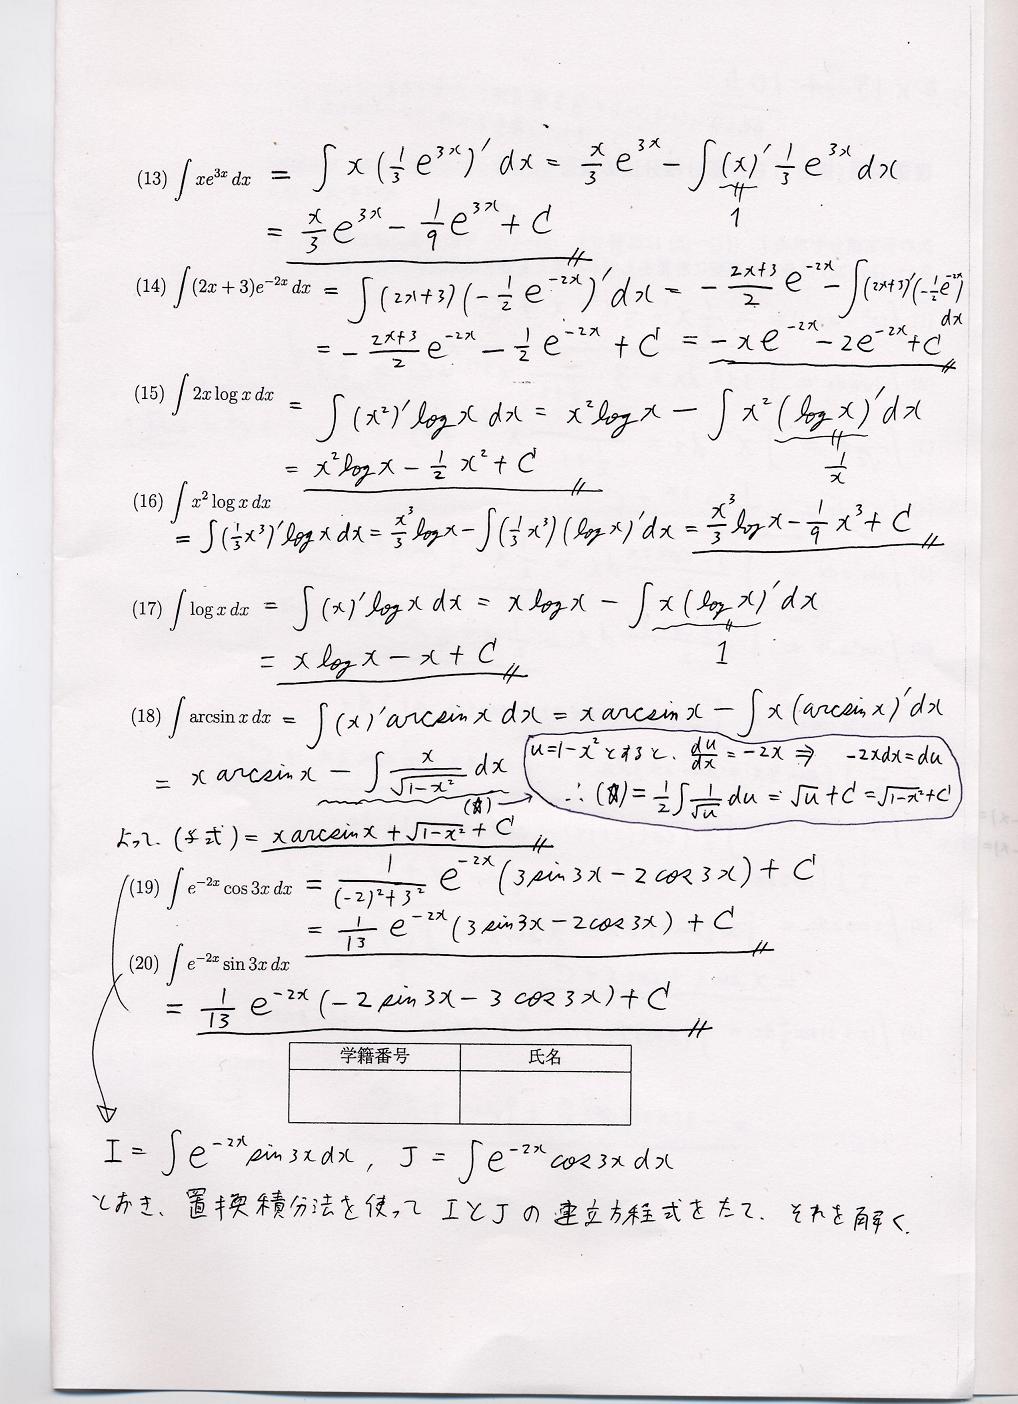 (13) ∫ xe^{3x} dx = ∫ x (1/3 e^{3x})' dx = x/3 e^{3x} − ∫ (x)' 1/3 e^{3x} dx
1
= x/3 e^{3x} − 1/9 e^{3x} + C
(14) ∫ (2x + 3)e^{−2x} dx = ∫ (2x+3) (−1/2 e^{−2x})' dx = − (2x+3)/2 e^{−2x} − ∫ (2x+3)' (−1/2 e^{−2x}) dx
= − (2x+3)/2 e^{−2x} − 1/2 e^{−2x} + C = −x e^{−2x} − 2e^{−2x} + C
(15) ∫ 2x log x dx = ∫ (x²)' log x dx = x² log x − ∫ x² (log x)' dx
1/x
= x² log x − 1/2 x² + C
(16) ∫ x² log x dx
= ∫ (1/3 x³)' log x dx = x³/3 log x − ∫ (1/3 x³) (log x)' dx = x³/3 log x − 1/9 x³ + C
(17) ∫ log x dx = ∫ (x)' log x dx = x log x − ∫ x (log x)' dx
1
= x log x − x + C
(18) ∫ arcsin x dx = ∫ (x)' arcsin x dx = x arcsin x − ∫ x (arcsin x)' dx
= x arcsin x − ∫ x/√(1−x²) dx
(☆)
u = 1−x² とすると、 du/dx = −2x ⇒ −2xdx = du
∴ (☆) = 1/2 ∫ 1/√u du = √u + C = √(1−x²) + C
よって、(与式) = x arcsin x + √(1−x²) + C
(19) ∫ e^{−2x} cos 3x dx = 1/((−2)²+3²) e^{−2x} (3 sin 3x − 2 cos 3x) + C
= 1/13 e^{−2x} (3 sin 3x − 2 cos 3x) + C
(20) ∫ e^{−2x} sin 3x dx
= 1/13 e^{−2x} (−2 sin 3x − 3 cos 3x) + C
学籍番号 氏名
I = ∫ e^{−2x} sin 3x dx , J = ∫ e^{−2x} cos 3x dx
とおき、置換積分法を使って IとJの連立方程式をたて、それを解く.